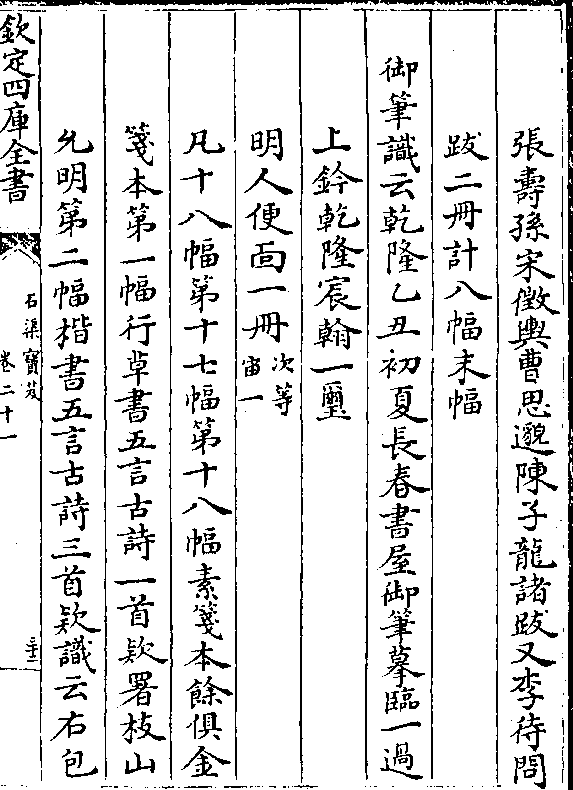 張壽孫宋徵輿曹思邈陳子龍諸跋又李待問
跋二冊計八幅末幅
御筆識云乾隆乙丑初夏長春書屋御筆摹臨一過
上鈐乾隆宸翰一璽
明人便面一冊次等宙一
凡十八幅第十七幅第十八幅素箋本餘俱金
箋本第一幅行草書五言古詩一首欵署枝山
允明第二幅楷書五言古詩三首欵識云右包
欽定四庫全書
石渠寶笈
卷二十一
三十二